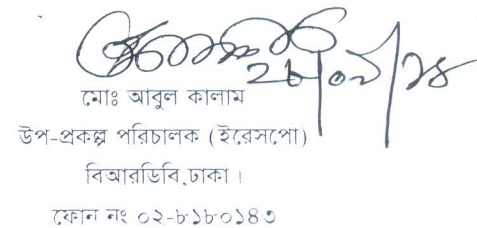 ২৮/০৯/১৪
মোঃ আবুল কালাম
উপ-প্রকল্প পরিচালক (ইরেসপো)
বিআরডিবি,ঢাকা।
ফোন নং ০২-৮১৮০১৪৩